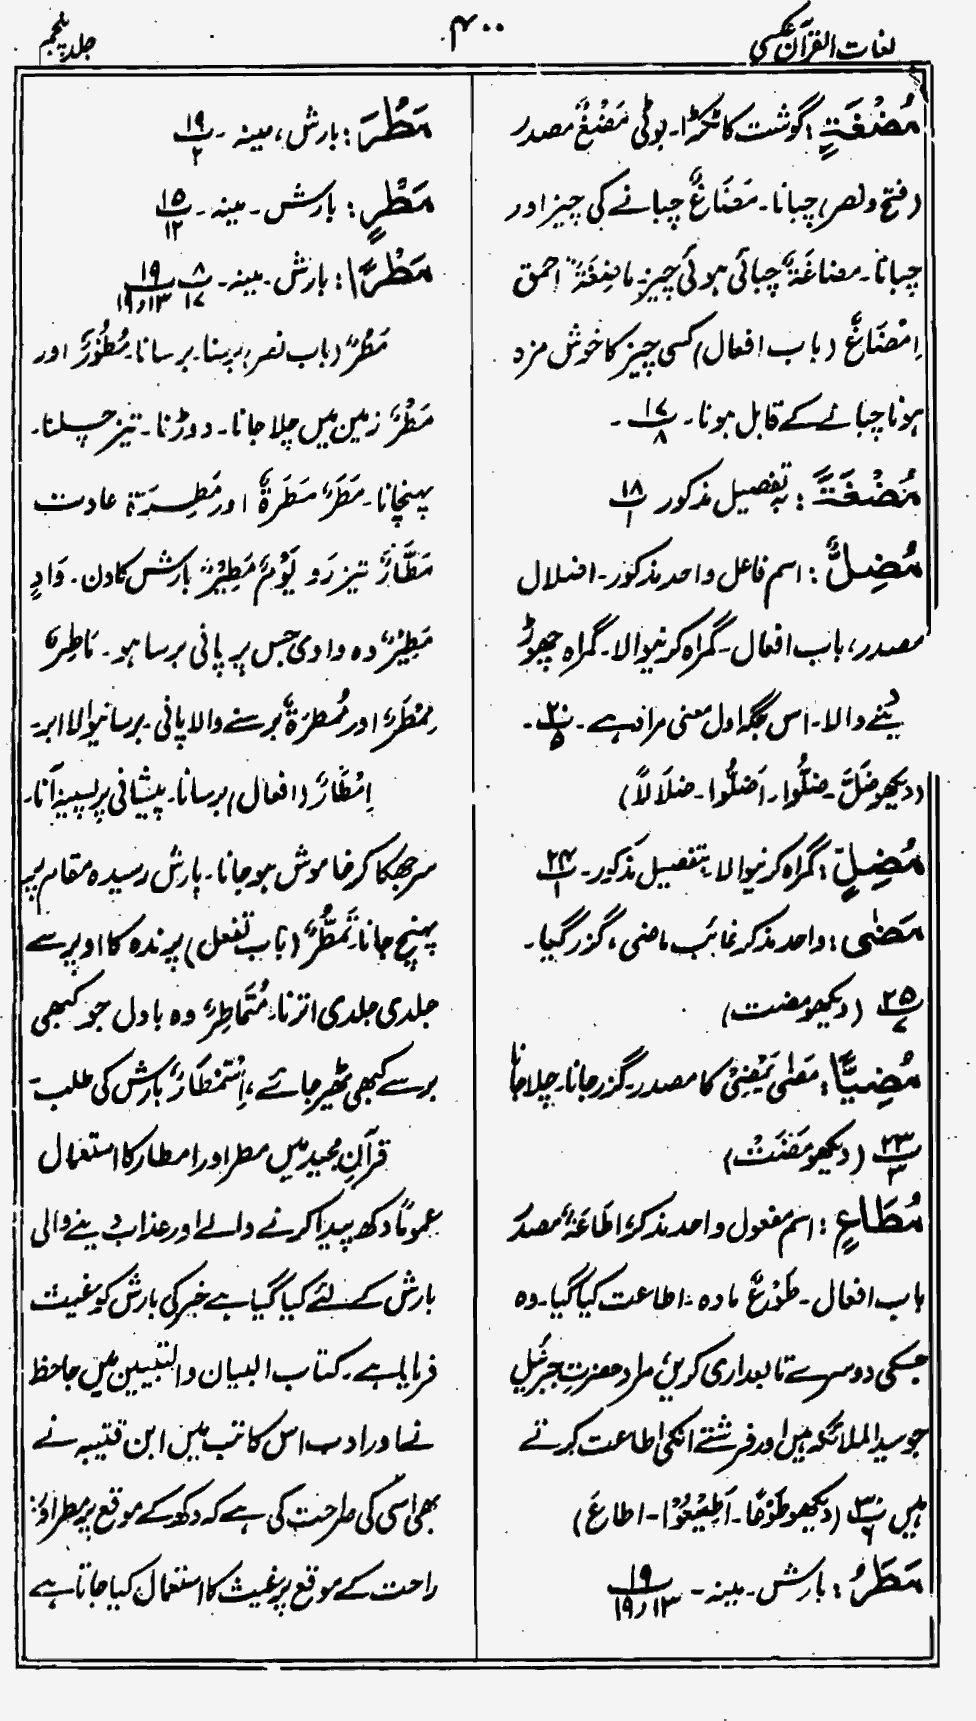 لغات القرآن عکسی
۴۰۰
جلد پنجم
مُضْغَةٍ : گوشت کا ٹکڑا۔ بوٹی مَضْغٌ مصدر
(فتح و نصر) چبانا۔ مَضَاغٌ چبانے کی چیز اور
چبانا۔ مضاغَةٌ چبائی ہوئی چیز۔ ماضِغَةٌ احمق
اِمْضَاغٌ (باب افعال) کسی چیز کا خوش مزہ
ہونا چبانے کے قابل ہونا۔ ۱۷/۸ ۔
مُضْغَةً : بہ تفصیل مذکور ۱۸/۱
مُضِلٌّ : اسم فاعل واحد مذکور۔ اضلال
مصدر، باب افعال۔ گمراہ کرنیوالا۔ گمراہ چھوڑ
دینے والا۔ اس جگہ اول معنی مراد ہے۔ ۲۰/۵ ۔
(دیکھو ضَلَّ۔ ضلُّوا۔ اَضلُّوا۔ ضلَالاً)
مُضِلٍّ : گمراہ کرنیوالا بتفصیل مذکور۔ ۲۴/۱
مَضٰی : واحد مذکر غائب ماضی، گزر گیا۔
۲۵/۷ (دیکھو مضت)
مُضِیًّا : مَضٰی یَمْضِیْ کا مصدر۔ گزر جانا۔ چلا جانا
۲۳/۳ (دیکھو مَضَتْ)
مُطَاعٍ : اسم مفعول واحد مذکر، اطَاعَةٌ مصدر
باب افعال۔ طَوْعٌ مادہ۔ اطاعت کیا گیا۔ وہ
جسکی دوسرے تابعداری کریں، مراد حضرتِ جبرئیل
جو سید الملائکہ ہیں اور فرشتے انکی اطاعت کرتے
ہیں ۳۰/۶ (دیکھو طَوْعًا۔ اَطِیْعُوْا۔ اطاعَ)
مَطَرُ : بارش۔ مینہ۔ ۱۹/۱۳ و ۱۹
مَطَرَ : بارش، مینہ ۔ ۱۹/۲
مَطَرٍ : بارش۔ مینہ۔ ۱۵/۱۲
مَطَرًا : بارش۔ مینہ۔ ۸/۱۷ ۱۹/۱۳ و ۱۹
مَطْرٌ (باب نصر) برسنا۔ برسانا۔ مُطُوْرٌ اور
مَطْرٌ زمین میں چلا جانا۔ دوڑنا۔ تیز چلنا۔
پہنچانا۔ مَطَرٌ مَطَرَةٌ اور مَطِرَة عادت
مَطَّارٌ تیز رَو یَوْمٌ مَطِیْرٌ بارش کا دن۔ وَادٍ
مَطِیْرٌ وہ وادی جس پر پانی برسا ہو۔ مَاطِرٌ
مِمْطَرٌ اور مُمطرَةٌ برسنے والا پانی۔ برسانیوالا ابر۔
اِمْطَارٌ (افعال) برسانا۔ پیشانی پر پسینہ آنا۔
سر جھکا کر خاموش ہو جانا۔ بارش رسیدہ مقام پر
پہنچ جانا۔ تَمَطُّرٌ (باب تفعل) پرندہ کا اوپر سے
جلدی جلدی اترنا، مُتَمَاطِرٌ وہ بادل جو کبھی
برسے کبھی ٹھیر جائے، اِسْتِمْطَارٌ بارش کی طلب۔
قرآنِ مجید میں مطر اور امطار کا استعمال
عموماً دکھ پیدا کرنے والے اور عذاب دینے والی
بارش کے لئے کیا گیا ہے خیر کی بارش کو غیث
فرمایا ہے۔ کتاب البیان والتبیین میں جاحظ
نے اور ادب اس کاتب میں ابن قتیبہ نے
بھی اسی کی صراحت کی ہے کہ دکھ کے موقع پر مطر اور
راحت کے موقع پر غیث کا استعمال کیا جاتا ہے